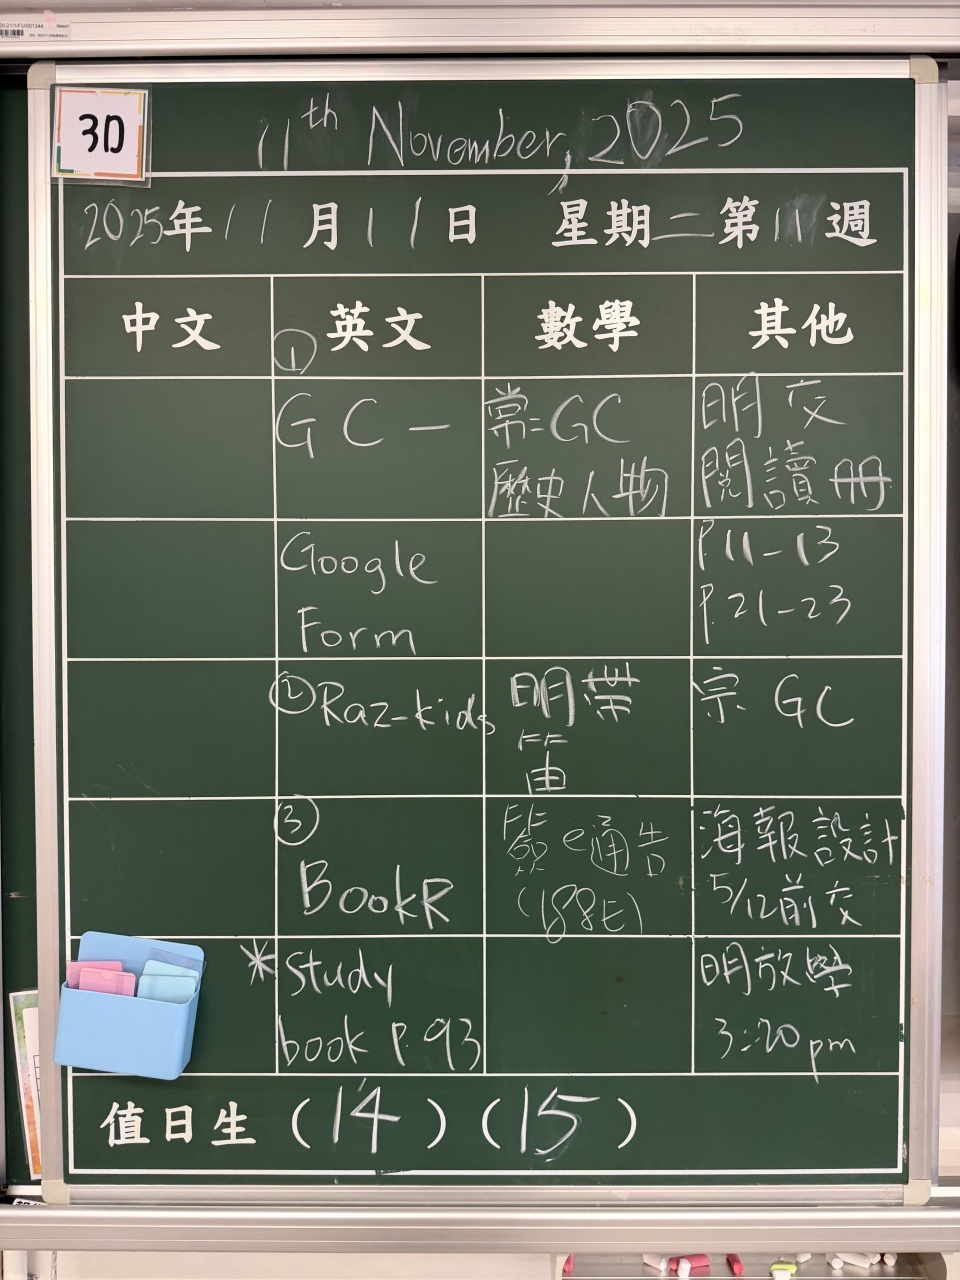 3D
11th November, 2025
2025年11月11日 星期二第11週
中文 英文 數學 其他
① GC-
Google
Form
② Raz-kids
③
BookR
* Study
book P.93
常=GC
歷史人物
明帶
笛
簽e通告
(188E)
明交
閱讀冊
P.11-13
P.21-23
宗 GC
海報設計
5/12前交
明放學
3:20pm
值日生 (14) (15)